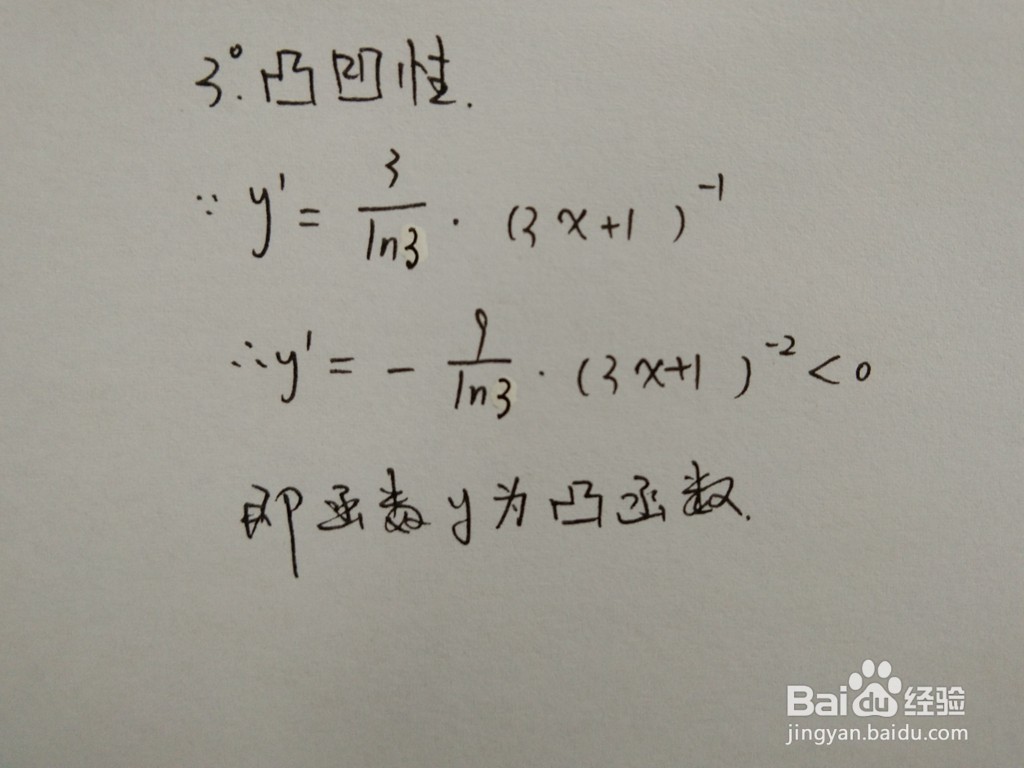 3°. 凸凹性.
∵ y' = 3/ln3 · (3x+1)^-1
∴ y' = - 9/ln3 · (3x+1)^-2 < 0
即函数y为凸函数.
Baidu经验
jingyan.baidu.com